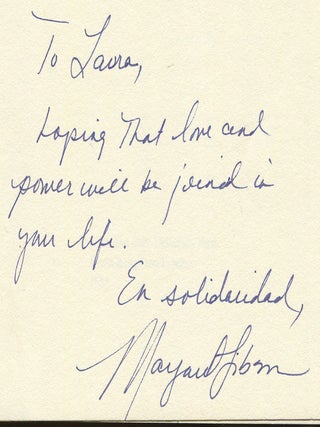 To Laura,
hoping that love and
power will be joined in
your life.
En solidaridad,
Margaret Gibson